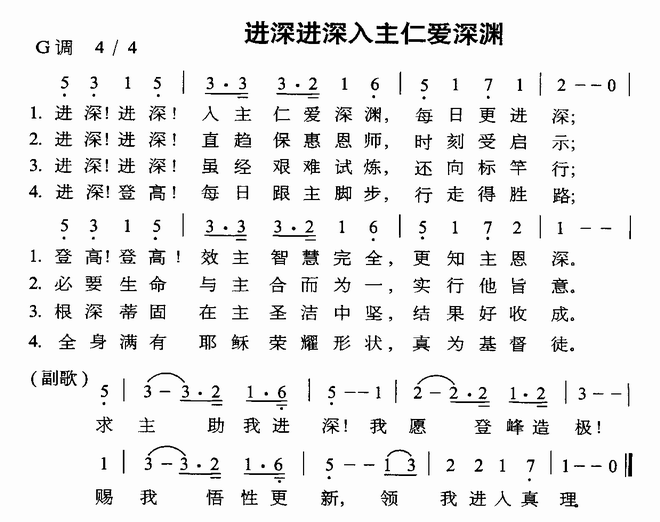 进深进深入主仁爱深渊
G调 4/4
5 3 1 5 | 3·3 3·2 1 6 | 5 1 7 1 | 2--0 |
1. 进深!进深! 入主仁爱深渊, 每日更进深;
2. 进深!进深! 直趋保惠恩师, 时刻受启示;
3. 进深!进深! 虽经艰难试炼, 还向标竿行;
4. 进深!登高! 每日跟主脚步, 行走得胜路;
5 3 1 5 | 3·3 3·2 1 6 | 5 1 7 2 | 1-- |
1. 登高!登高! 效主智慧完全, 更知主恩深。
2. 必要生命 与主合而为一, 实行他旨意。
3. 根深蒂固 在主圣洁中坚, 结果好收成。
4. 全身满有 耶稣荣耀形状, 真为基督徒。
(副歌) 5 | 3-3·2 1·6 | 5--1 | 2-2·2 1·2 | 3-- |
求主助我进深!我愿登峰造极!
1 | 3-3·2 1·6 | 5--13 | 2 2 1 7 | 1--0 ‖
赐我悟性更新, 领我进入真理。